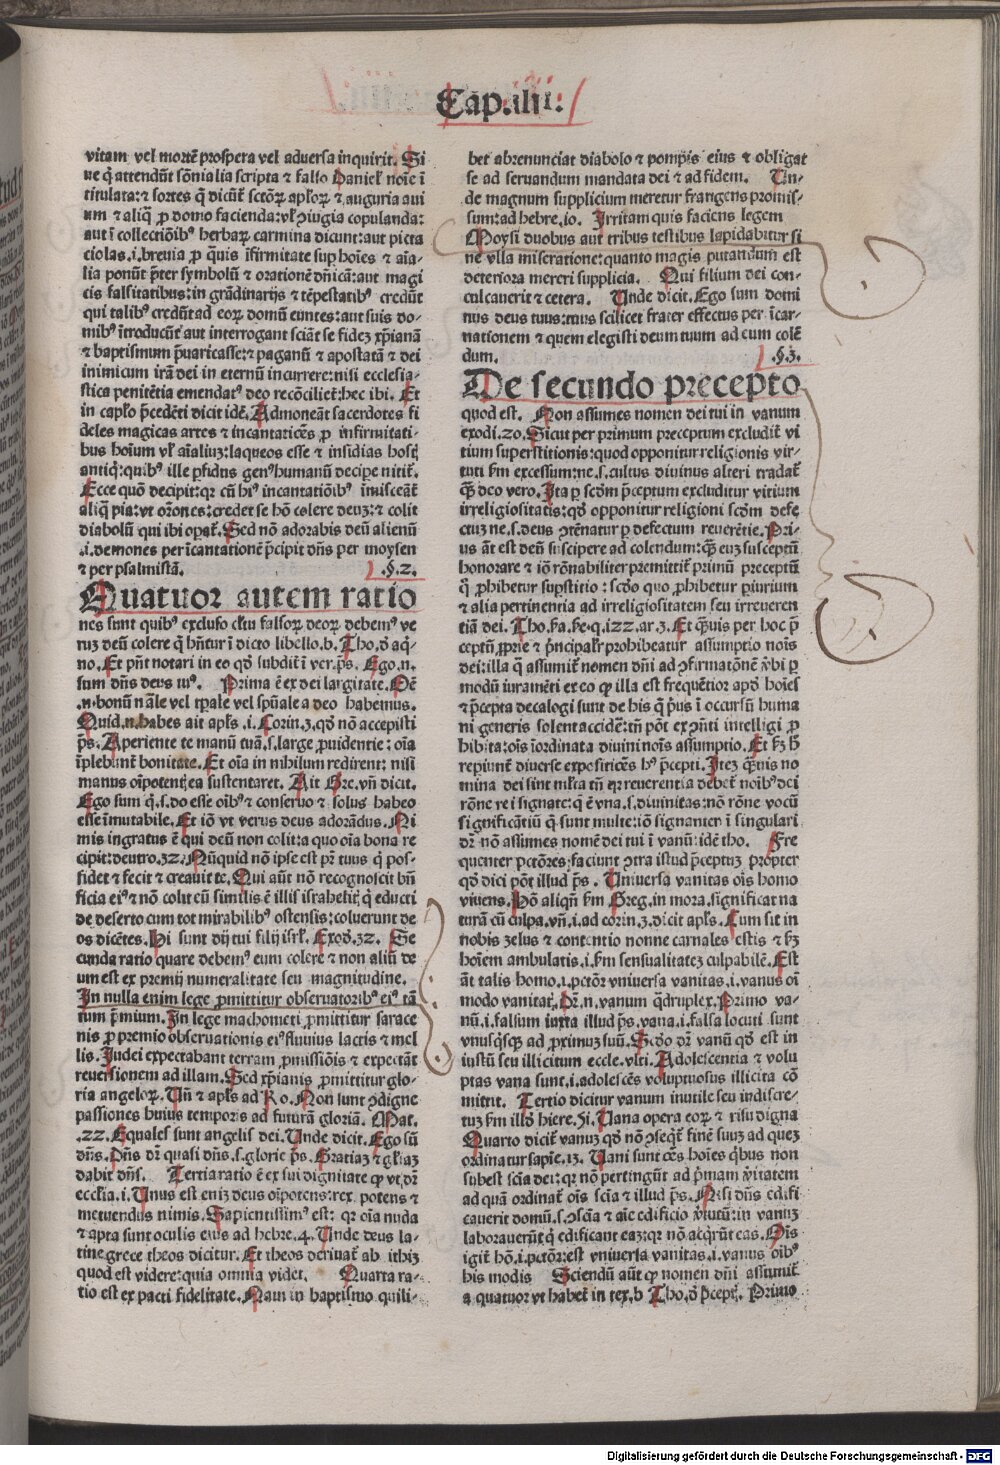 Cap. iiii.
vitam vel mortē prospera vel aduersa inquirit. Si
ue q̄ attendūt sōnialia scripta ⁊ falso Daniel' noīe ī
titulata: ⁊ sortes q̄ dicūt sctōꝝ apl'oꝝ ⁊ auguria aui
um ⁊ aliq̄ ꝓ domo facienda: vl' ꝯiugia copulanda:
aut ī collectiōibꝰ herbaꝝ carmina dicunt: aut picta
ciolas .i. breuia ꝓ q̄uis īfirmitate sup hoīes ⁊ aīa-
lia ponūt p̄ter symbolū ⁊ orationē dn̄icā: aut magi
cis falsitatibus: in grādinarijs ⁊ tēpestatibꝰ credūt
qui talibꝰ credūt ad eoꝝ domū euntes: aut suis do-
mibꝰ ītroducūt aut interrogant sciāt se fidez xp̄ianā
⁊ baptismum p̄uaricasse: ⁊ paganū ⁊ apostatā ⁊ dei
inimicum irā dei in eternū incurrere: nisi ecclesia-
stica penitētia emendatꝰ deo recōciliet: hec ibi. Et
in cap̄lo p̄cedēti dicit idē. Admoneāt sacerdotes fi
deles magicas artes ⁊ incantatiões ꝓ infirmitati-
bus hoīum vl' aīaliuz: laqueos esse ⁊ insidias hostꝭ
antiq̄: quibꝰ ille ꝑfidus genꝰ humanū decipe nitit̄.
Ecce quō decipit: qr cū hiꝰ incantatiōibꝰ īmisceāt̄
aliq̄ pia: vt or̄ones: credet se hō colere deuz: ⁊ colit
diabolū qui ibi opat̄. Sed nō adorabis deū alienū
.i. demones per īcantationē p̄cipit dn̄s per moysen
⁊ per psalmistā. .§.2.
Quatuor autem ratio
nes sunt quibꝰ excluso cl'tu falsoꝝ deoꝝ debemꝰ ve
ruz deū colere q̄ hn̄tur ī dicto libello. b. Tho. ð aq̄-
no. Et p̄nt notari in eo qð subdit̄ ī ver. p̄s. Ego. n.
sum dn̄s deus tuꝰ. Prima ē ex dei largitate. Oē
.n. bonū n̄ale vel tp̄ale vel spūale a deo habemus.
Quid. n. habes ait apl's .i. Corin. 3. qð nō accepisti
p̄s. Aperiente te manū tuā. s. large ꝓuidentie: oīa
īplebunt̄ bonitate. Et oīa in nihilum redirent: nisi
manus oīpotent̄ ea sustentaret. Ait Gre. vn̄ dicit.
Ego sum q̄. s. do esse oībꝰ ⁊ conseruo ⁊ solus habeo
esse īmutabile. Et iō vt verus deus adorādus. Ni
mis ingratus ē qui deū non colit: a quo oīa bona re
cipit: deutro. 32. Nūquid nō ipse est pr̄ tuus q̄ pos-
sidet ⁊ fecit ⁊ creauit te. Qui aūt nō recognoscit bn̄
ficia eiꝰ ⁊ nō colit eū similis ē illis israhelit̄ q̄ educti
de deserto cum tot mirabilibꝰ ostensis: coluerunt de
os dicētes. Hi sunt dij tui filij isrl'. Exod. 32. Se
cunda ratio quare debemꝰ eum colere ⁊ non aliū de
um est ex premij numeralitate seu magnitudine.
In nulla enim lege ꝓmittitur obseruatoribꝰ eiꝰ tā
tum p̄mium. In lege machometi ꝓmittitur sarace
nis ꝓ premio obseruationis eiꝰ fluuius lactis ⁊ mel
lis. Judei expectabant terram ꝓmissiōis ⁊ expectāt
reuersionem ad illam. Sed xp̄ianis ꝓmittitur glo-
ria angeloꝝ. Vn̄ ⁊ apl's ad Ro. Non sunt ꝯdigne
passiones huius temporis ad futurā gloriā. Mat.
.22. Equales sunt angelis dei. Unde dicit. Ego sū
dn̄s. Dn̄s dr̄ quasi dn̄s. s. glorie p̄s. Gratiaz ⁊ gl'iaz
dabit dn̄s. Tertia ratio ē ex sui dignitate ꝙ vt dr̄
eccl'ia .i. Unus est eniz deus oīpotens: rex potens ⁊
metuendus nimis. Sapientissimꝰ est: qr oīa nuda
⁊ apta sunt oculis eius ad hebre. 4. Unde deus la-
tine grece theos dicitur. Et theos deriuat̄ ab ithiz
quod est videre: quia omnia videt. Quarta ra-
tio est ex pacti fidelitate. Nam in baptismo quili-
bet abrenunciat diabolo ⁊ pompis eius ⁊ obligat
se ad seruandum mandata dei ⁊ ad fidem. Un-
de magnum supplicium meretur frangens promis-
sum: ad hebre. io. Irritam quis faciens legem
Moysi duobus aut tribus testibus lapidabitur si
ne vlla miseratione: quanto magis putandum est
deteriora mereri supplicia. Qui filium dei con-
culcauerit ⁊ cetera. Unde dicit. Ego sum domi
nus deus tuus: tuus scilicet frater effectus per īcar-
nationem ⁊ quem elegisti deum tuum ad eum colē
dum. .§.3.
De secundo precepto
quod est. Non assumes nomen dei tui in vanum
exodi. 20. Sicut per primum preceptum excludit̄ vi
tium superstitionis: quod opponitur religionis vir-
tuti ẜm excessum: ne. s. cultus diuinus alteri tradat̄
q̄ꝫ deo vero. Ita ꝑ scðm p̄ceptum excluditur vitium
irreligiositatis: qð opponitur religioni scðm defe-
ctuz ne. s. deus ꝯtēnatur ꝑ defectum reuerētie. Pri-
us āt est deū suscipere ad colendum: q̄ꝫ euz susceptū
honorare ⁊ iō rōnabiliter premittit̄ primū preceptū
q̄ ꝓhibetur suꝑstitio: scðo quo ꝓhibetur ꝑiurium
⁊ alia pertinentia ad irreligiositatem seu irreueren
tiā dei. Tho. ẜa. ẜe. q. i22. ar. 3. Et q̄ꝫuis per hoc p̄
ceptū ꝓprie ⁊ p̄ncipalr̄ prohibeatur assumptio noīs
dei: illa q̄ assumit̄ nomen dn̄i ad ꝯfirmatōnē v̄bi ꝑ
modū iuramēti ex eo ꝙ illa est frequētior apð hoīes
⁊ p̄cepta decalogi sunt de his q̄ p̄us ī occursū huma
ni generis solent accidē: tn̄ pōt ex ꝯn̄ti intelligi ꝓ
hibita: oīs īordinata diuini noīs assumptio. Et ẜꝫ ħ
repiunt̄ diuerse expositiões hꝰ p̄cepti. Itez q̄ꝫuis no
mina dei sint ml'ta tn̄ eꝝ reuerentia debet̄ noībꝰ dei
rōne rei signate: q̄ ē vna. s. diuinitas: nō rōne vocū
significātiū q̄ sunt multe: iō signanter ī singulari
dr̄ nō assumes nomē dei tui ī vanū: idē tho. Fre
quenter pctōres faciunt ꝯtra istud p̄ceptuz propter
qð dici pōt illud p̄s. Uniuersa vanitas oīs homo
viuens. Hō aliqn̄ ẜm Greg. in mora. significat na
turā cū culpa. vn̄ .i. ad corin. 3. dicit apl's. Cum sit in
nobis zelus ⁊ contentio nonne carnales estis ⁊ ẜꝫ
hoīem ambulatis .i. ẜm sensualitatez culpabilē. Est
āt talis homo .i. pctōr vniuersa vanitas .i. vanus oī
modo vanitat̄. Dr̄. n. vanum q̄druplex. Primo va-
nū .i. falsum iuxta illud p̄s. vana .i. falsa locuti sunt
vnusq̄sq̄ꝫ ad ꝓximuz suū. Scðo dr̄ vanū qð est in
iustū seu illicitum eccle. vlti. Adolescentia ⁊ volu
ptas vana sunt .i. adolescēs voluptuosus illicita cō
mittit. Tertio dicitur vanum inutile seu indiscre-
tuz ẜm illð hiere. 5i. Uana opera eoꝝ ⁊ risu digna
Quarto dicit̄ vanuz qð nō ꝯseqt̄ finē suuz ad quez
ordinatur sapīe. 13. Uani sunt oēs hoīes q̄bus non
subest scīa dei: qr nō pertingūt ad p̄mam v̄itatem
ad quā ordinat̄ oīs scīa ⁊ illud p̄s. Nisi dn̄s edifi
cauerit domū. s. ꝯscīa ⁊ aīe edificio v̄tutū: in vanuz
laborauerūt q̄ edificant eaz: qr nō acq̄rūt eas. Oīs
igit̄ hō .i. pctōr: est vniuersa vanitas .i. vanus oībꝰ
his modis Sciendū aūt ꝙ nomen dn̄i assumit̄
a quatuor vt habet̄ in tex. b Tho. ð p̄cept̄. Primo
Digitalisierung gefördert durch die Deutsche Forschungsgemeinschaft - DFG